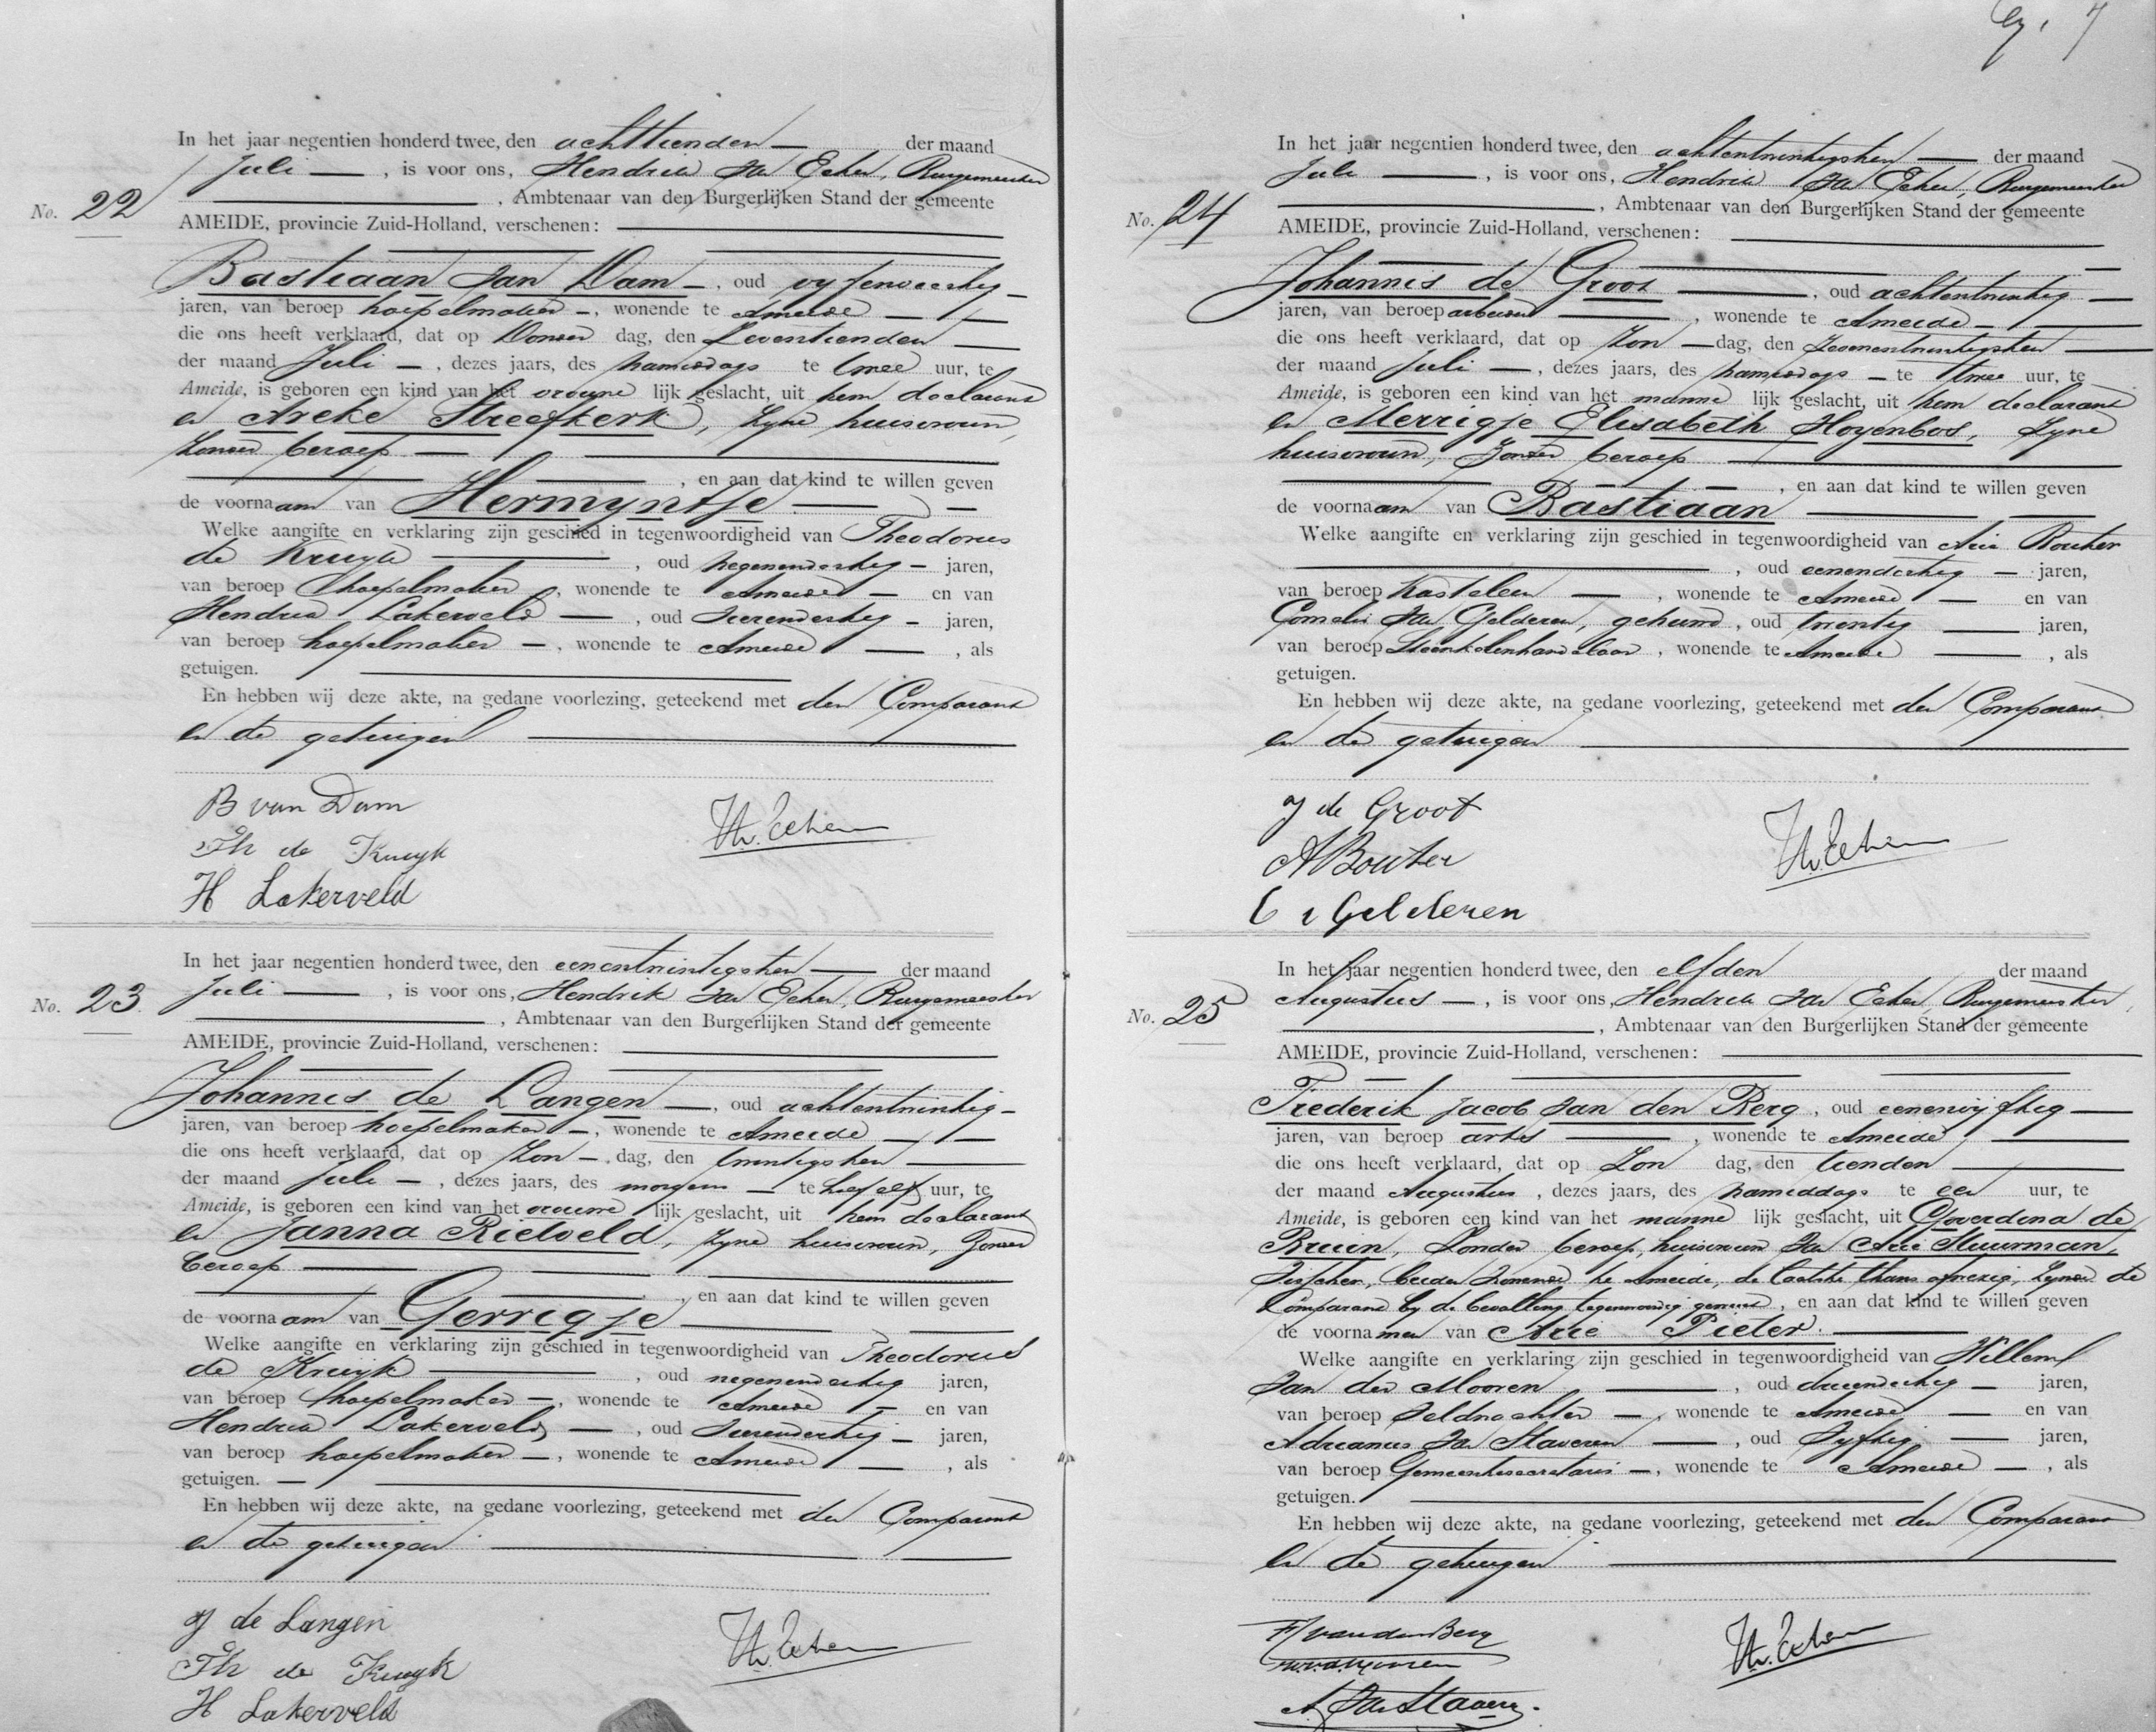 In het jaar negentien honderd twee, den achttienden der maand
Juli, is voor ons, Hendrik van Echer, Burgemeester
No. 22
, Ambtenaar van den Burgerlijken Stand der gemeente
AMEIDE, provincie Zuid-Holland, verschenen:
Bastiaan van Dam, oud vyfenveertig
jaren, van beroep hoepelmaker, wonende te Ameide
die ons heeft verklaard, dat op Donder dag, den zeventienden
der maand Juli, dezes jaars, des namiddags te twee uur, te
Ameide, is geboren een kind van het vrouwe lijk geslacht, uit hem declarant
en Areke Streefkerk, zyne huisvrouw,
zonder beroep
, en aan dat kind te willen geven
de voornaam van Hermyntje
Welke aangifte en verklaring zijn geschied in tegenwoordigheid van Theodorus
de Kruyk, oud negenendertig jaren,
van beroep hoepelmaker, wonende te Ameide en van
Hendrik Lakerveld, oud vierendertig jaren,
van beroep hoepelmaker, wonende te Ameide, als
getuigen.
En hebben wij deze akte, na gedane voorlezing, geteekend met den Comparant
en de getuigen
B van Dam
Th de Kruyk
H Lakerveld
In het jaar negentien honderd twee, den eenentwintigsten der maand
Juli, is voor ons, Hendrik van Echer, Burgemeester
No. 23
, Ambtenaar van den Burgerlijken Stand der gemeente
AMEIDE, provincie Zuid-Holland, verschenen:
Johannes de Langen, oud achtentwintig
jaren, van beroep hoepelmaker, wonende te Ameide
die ons heeft verklaard, dat op Zon dag, den twintigsten
der maand Juli, dezes jaars, des morgens te half elf uur, te
Ameide, is geboren een kind van het vrouwe lijk geslacht, uit hem declarant
en Janna Rietveld, zyne huisvrouw, zonder
beroep
, en aan dat kind te willen geven
de voornaam van Gerrigje
Welke aangifte en verklaring zijn geschied in tegenwoordigheid van Theodorus
de Kruyk, oud negenendertig jaren,
van beroep hoepelmaker, wonende te Ameide en van
Hendrik Lakerveld, oud vierendertig jaren,
van beroep hoepelmaker, wonende te Ameide, als
getuigen.
En hebben wij deze akte, na gedane voorlezing, geteekend met den Comparant
en de getuigen
J de Langen
Th de Kruyk
H Lakerveld
7
In het jaar negentien honderd twee, den achtentwintigsten der maand
Juli, is voor ons, Hendrik van Echer, Burgemeester
No. 24
, Ambtenaar van den Burgerlijken Stand der gemeente
AMEIDE, provincie Zuid-Holland, verschenen:
Johannis de Groot, oud achtentwintig
jaren, van beroep arbeider, wonende te Ameide
die ons heeft verklaard, dat op Zon dag, den zevenentwintigsten
der maand Juli, dezes jaars, des namiddags te twee uur, te
Ameide, is geboren een kind van het manne lijk geslacht, uit hem declarant
en Merrigje Elisabeth Hoyenbos, zyne
huisvrouw, zonder beroep
, en aan dat kind te willen geven
de voornaam van Bastiaan
Welke aangifte en verklaring zijn geschied in tegenwoordigheid van Arie Bouter
, oud eenendertig jaren,
van beroep Kastelein, wonende te Ameide en van
Cornelis van Gelderen, gehuwd, oud twentig jaren,
van beroep Steenkolenhandelaar, wonende te Ameide, als
getuigen.
En hebben wij deze akte, na gedane voorlezing, geteekend met den Comparant
en de getuigen
J de Groot
A Bouter
C v Gelderen
In het jaar negentien honderd twee, den elfden der maand
Augustus, is voor ons, Hendrik van Echer, Burgemeester,
No. 25
, Ambtenaar van den Burgerlijken Stand der gemeente
AMEIDE, provincie Zuid-Holland, verschenen:
Frederik Jacob van den Berg, oud eenenvijftig
jaren, van beroep arts, wonende te Ameide
die ons heeft verklaard, dat op Zon dag, den tienden
der maand Augustus, dezes jaars, des namiddags te een uur, te
Ameide, is geboren een kind van het manne lijk geslacht, uit Goverdina de
Bruin, zonder beroep, huisvrouw van Arie Stuurman,
visscher, beiden wonende te Ameide, de laatste thans afwezig, zynde de
Comparant by de bevalling tegenwoordig geweest, en aan dat kind te willen geven
de voornamen van Arie Pieter.
Welke aangifte en verklaring zijn geschied in tegenwoordigheid van Willem
van der Mooren, oud drieendertig jaren,
van beroep Veldwachter, wonende te Ameide en van
Adrianus van Staveren, oud vyftig jaren,
van beroep Gemeentesecretaris, wonende te Ameide, als
getuigen.
En hebben wij deze akte, na gedane voorlezing, geteekend met den Comparant
en de getuigen
FJ van den Berg
A. van Staveren.